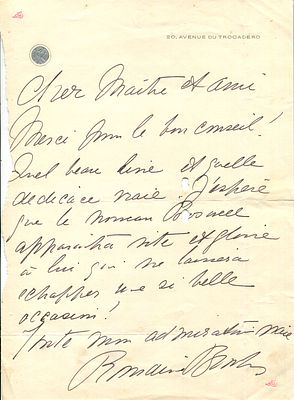 20, AVENUE DU TROCADERO
Cher Maître et ami
Merci pour le bon conseil!
Quel beau livre et quelle
dedicace vraie. J'espère
que le nouveau Boswell
apparaitra vite et gloire
à lui qui ne laissera
echapper une si belle
occasion!
Toute mon admiration vraie